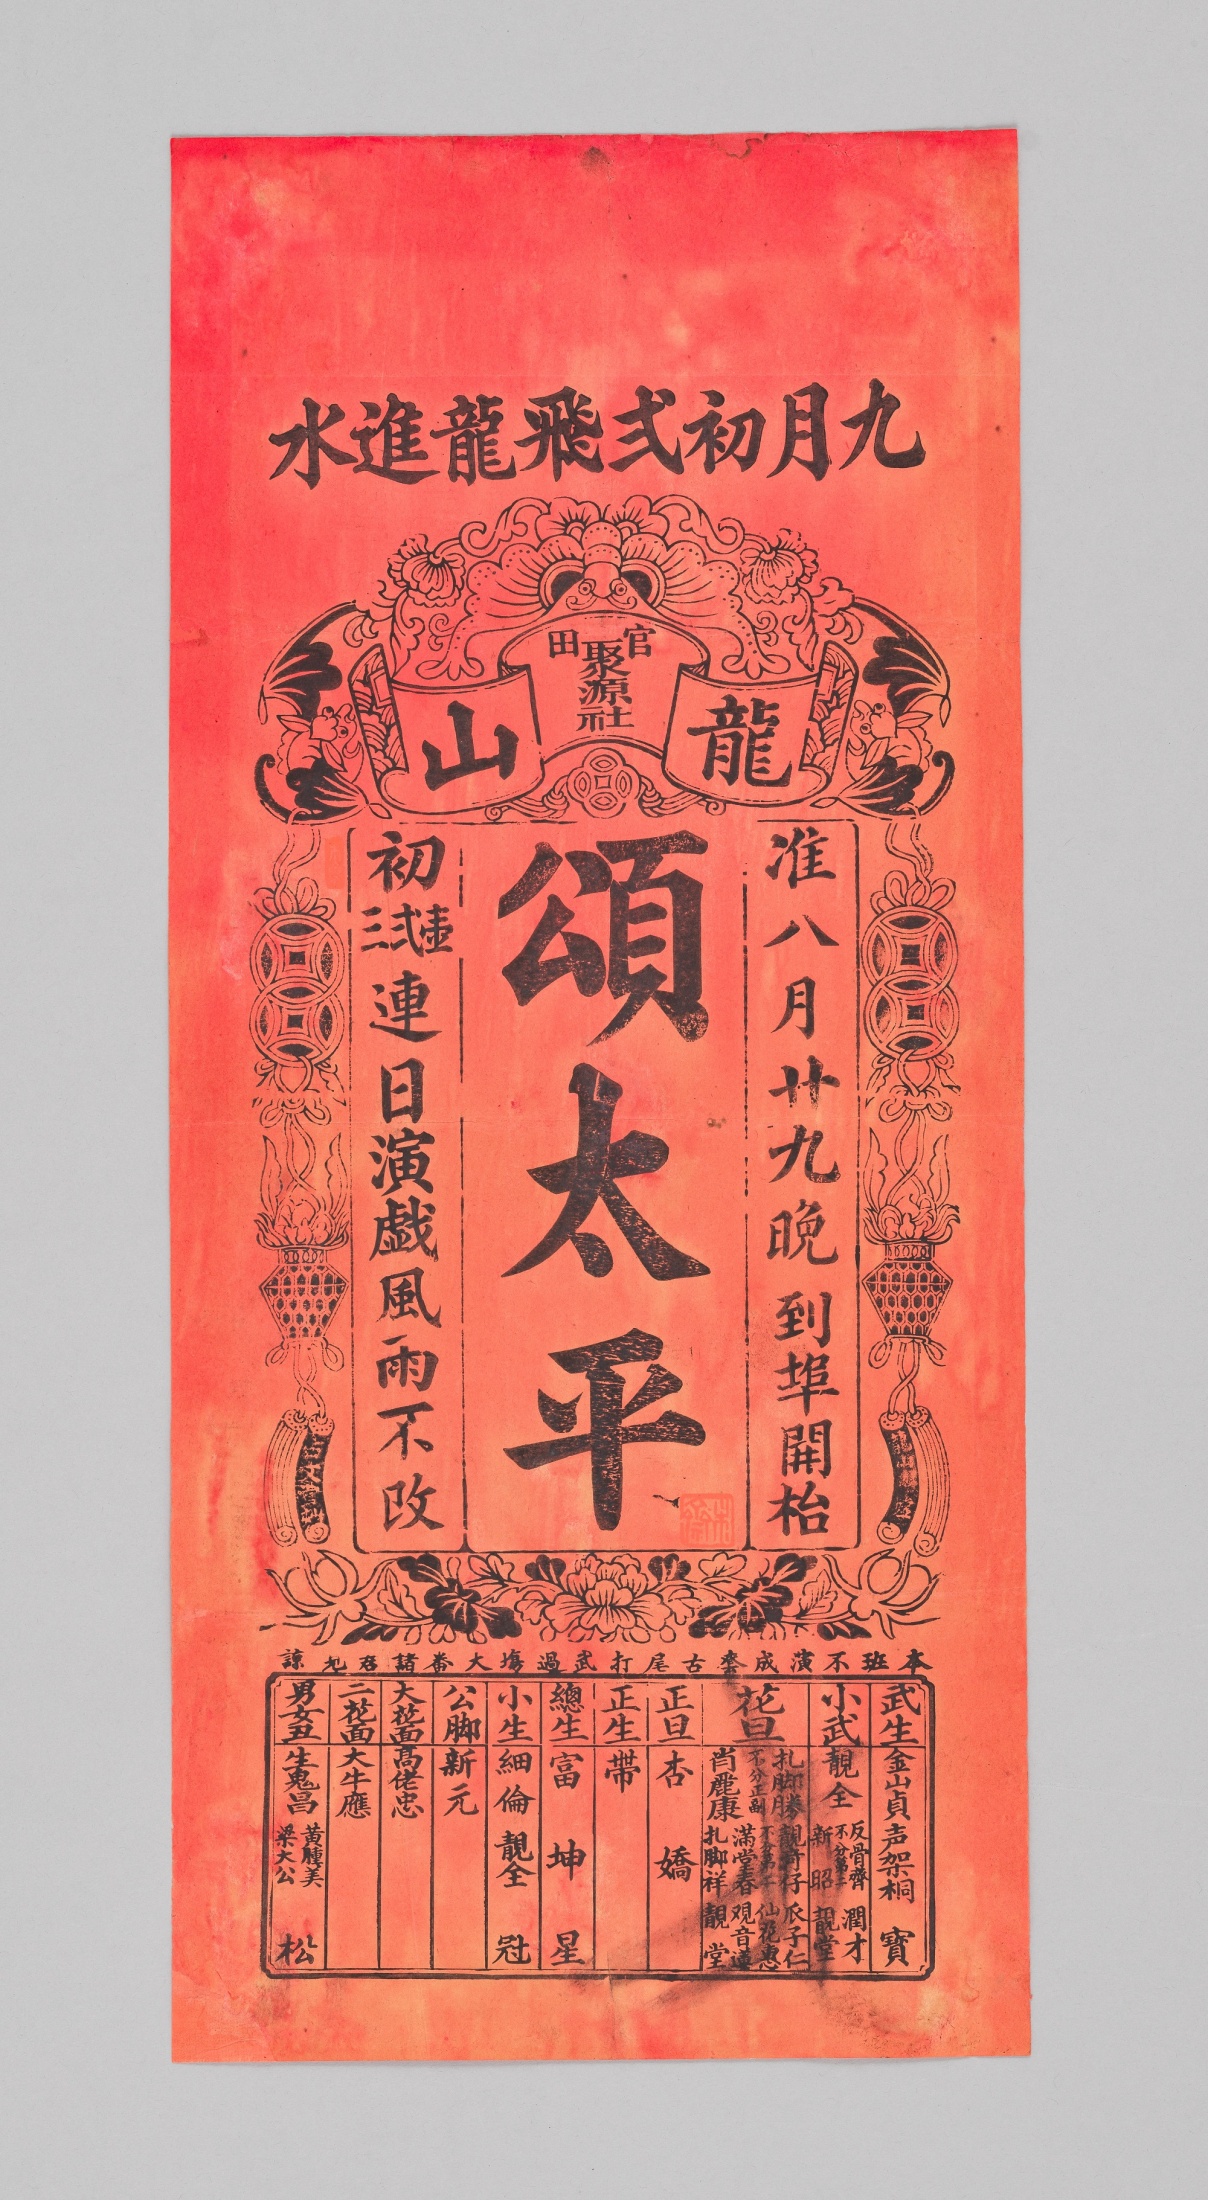 九月初弍飛龍進水
官田
聚源社
龍山
准八月廿九晚到埠開枱
頌太平
初壹弍三連日演戯風雨不改
本班不演成齣古尾打武過塲大番諸君見諒
武生 金山貞 声架桐 寶
小武 靚全 反骨齊 不分第二 新昭 潤才 靚堂
花旦 扎脚勝 不分正副 肖麗康 靚奇仔 不分第二 滿堂春 扎脚祥 瓜子仁 仙花惠 观音蓮 靚堂
正旦 杏嬌
正生 帶
總生 富坤星
小生 細倫 靚全 冠
公脚 新元
大花面 高佬忠
二花面 大牛應
男女丑 生鬼昌 黃腫美 梁大公 松